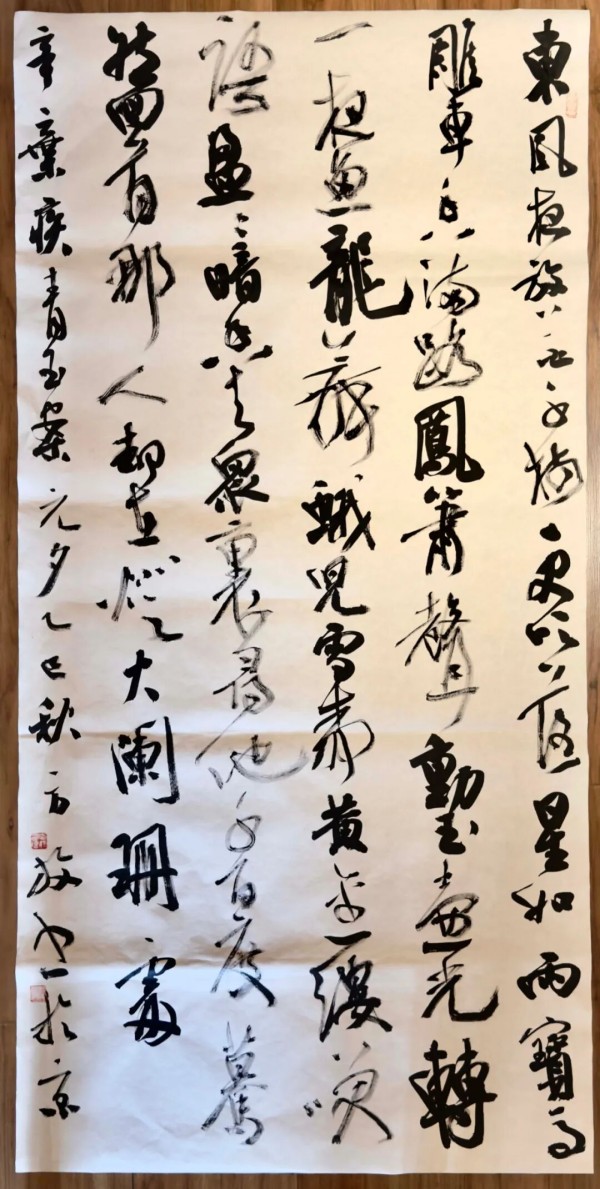 東風夜放花千樹更吹落星如雨寶馬
雕車香滿路鳳簫聲動玉壺光轉
一夜魚龍舞蛾兒雪柳黃金縷笑
語盈〻暗香去眾裏尋他千百度驀
然回首那人却在燈火闌珊處
辛棄疾青玉案元夕乙巳秋方放书於京